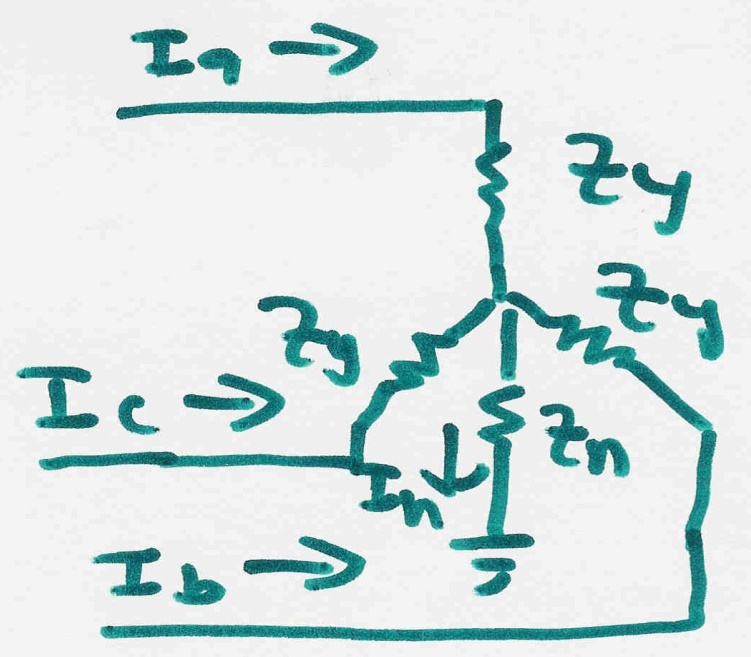 Ia →
Zy
Zy
Zy
Ic →
Zn
In ↓
Ib →